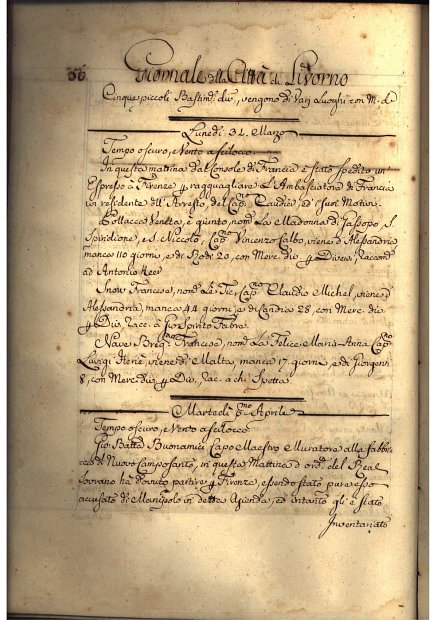 86 Giornale della Città di Livorno
Cinque piccoli Bastim.ti div., vengono di Varj Luoghi con M. d.
Lunedì 31. Marzo
Tempo oscuro, e Vento a scilocco
In questa mattina dal Console di Francia è stato spedito un
Espresso à Firenze p ragguagliare L'Ambasciatore di Francia
ivi residente dell'Arresto del Cap.no e suoi Motivi
Pollacca Veneta, è giunto, nom.ta La Madonna di S.
Spiridione, e S. Niccolò, Cap.no Vincenzo Calbo, viene d'Alessandria
manca 110 giorni, e di Rodi 20, con Merc. div. p Diversi, Raccom.
ad Antonio
Snow Francese, nom.ta Cap.no Claudio Michel, viene d'
Alessandria, manca 44 giorni, da Candia 28, con Merc. div.
p Div., Racc. a Gio Spirito Fabre.
Nave Francese, nom.ta La Felice Maria-Anna Cap.no
Luigi viene di Malta, manca 17. giorni, e di
8, con Merc. div. p Div., Rac. a chi Spetta.
Martedì P.mo Aprile
Tempo oscuro, e Vento a scilocco
Gio. Batta Buonamici Capo Maestro Muratore alla fabbri-
ca del Nuovo Camposanto, in questa Mattina d'ord.e del Real
Sovrano hà dovuto partire p Firenze, essendo stato pure esso
accusato di Manipolo in detta Azienda, ed intanto gli è stato
Inventariato